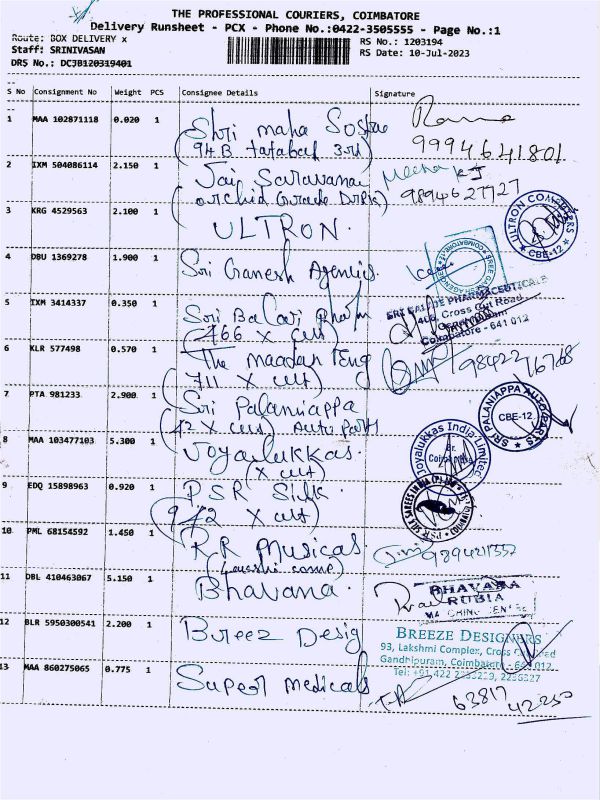 THE PROFESSIONAL COURIERS, COIMBATORE
Delivery Runsheet - PCX - Phone No.:0422-3505555 - Page No.:1
Route: BOX DELIVERY x
Staff: SRINIVASAN
DRS No.: DCJB120319401
RS No.: 1203194
RS Date: 10-Jul-2023
S No Consignment No Weight PCS Consignee Details Signature
1 MAA 102871118 0.020 1 Shri maha
(94B tatabad 3rd)
9994641801
2 IXM 504086114 2.150 1 Jai Saravana
(orchid
3 KRG 4529563 2.100 1 ULTRON.
ULTRON
CBE-12
4 DBU 1369278 1.900 1 Sri Ganesh Agencies.
SREE GANESH AGENCIES
COIMBATORE-12
5 IXM 3414337 0.350 1 Sri Balaji
(766 X cut)
PHARMACEUTICALS
406, Cross Cut Road
Coimbatore - 641 012
6 KLR 577498 0.570 1 The maadan Teng
(711 X cut)
7 PTA 981233 2.900 1 Sri Palaniappa
(42 X cut) Auto parts
SRI PALANIAPPA AUTOPARTS
CBE-12
8 MAA 103477103 5.300 1 Joyalukkas.
(X cut)
Joyalukkas India Limited
Br.
9 EDQ 15898963 0.920 1 PSR Silk.
(942 X cut)
PSR SILK SAREES INDIA (P) Ltd
10 PML 68154592 1.450 1 RR Musicals
11 DBL 410463067 5.150 1 Bhavana.
BHAVARA
RUBIA
12 BLR 5950300541 2.200 1 Breez Desig
BREEZE DESIGNERS
93, Lakshmi Complex, Cross Cut Road
Gandhipuram, Coimbatore - 641 012
13 MAA 860275065 0.775 1 Super Medicals
63817
42250